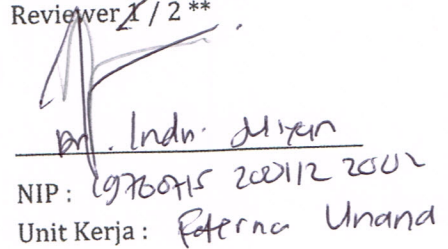 Reviewer 1 / 2 **
Dr. Indri
NIP : 19760715 200112 2002
Unit Kerja : Faterna Unand